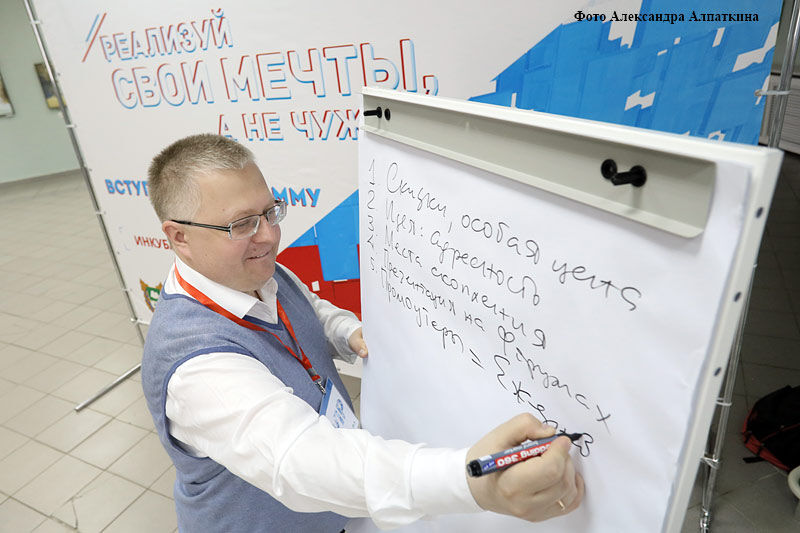 Фото Александра Алпаткина
РЕАЛИЗУЙ
СВОИ МЕЧТЫ,
А НЕ ЧУЖ
ВСТУ
МУ
ИНКУБ
1. Скидки, особая цена
2. Идея: адресность
3. Места скопления
4. Презентация на форумах
5. Промоутеры =
edding 360